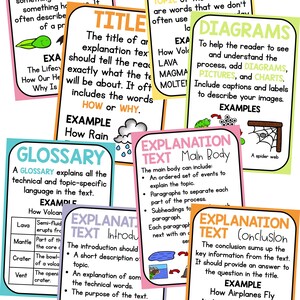 something ho
something ha
often describe
of a
The Lifecy
How Our He
Why Is
TITLE
The title of an
explanation text
should tell the reader
exactly what the text
will be about. It often
includes the words
HOW or WHY.
EXAMPLE
How Rain
often use
day
How Vol
LAVA
MAGMA
MOLTEN
DIAGRAMS
To help the reader to see
and understand the
process, add DIAGRAMS,
PICTURES, and CHARTS.
Include captions and labels
to describe your images.
EXAMPLES
A spider web
GLOSSARY
A GLOSSARY explains all the
technical and topic-specific
language in the text.
EXAMPLE
How Volcan
Lava
Semi-flui
erupts fro
Mantle
Part of th
the core
Crater
The bowl
of a volc
Vent
The open
of the ce
EXPLANATION
TEXT Main Body
The main body can include:
• An ordered set of events to
explain the topic.
• Paragraphs to separate each
part of the process.
• Subheading
paragraph.
• Each parag
next with an
EXPLANA
TEXT Introdu
The introduction should
• A short description o
topic.
• An explanation of som
the technical words.
• The purpose of the text.
EXPLANATION
TEXT Conclusion
The conclusion sums up the
key information from the text.
It should provide an answer to
the question in the title.
EXAMPLE
How Airplanes Fly